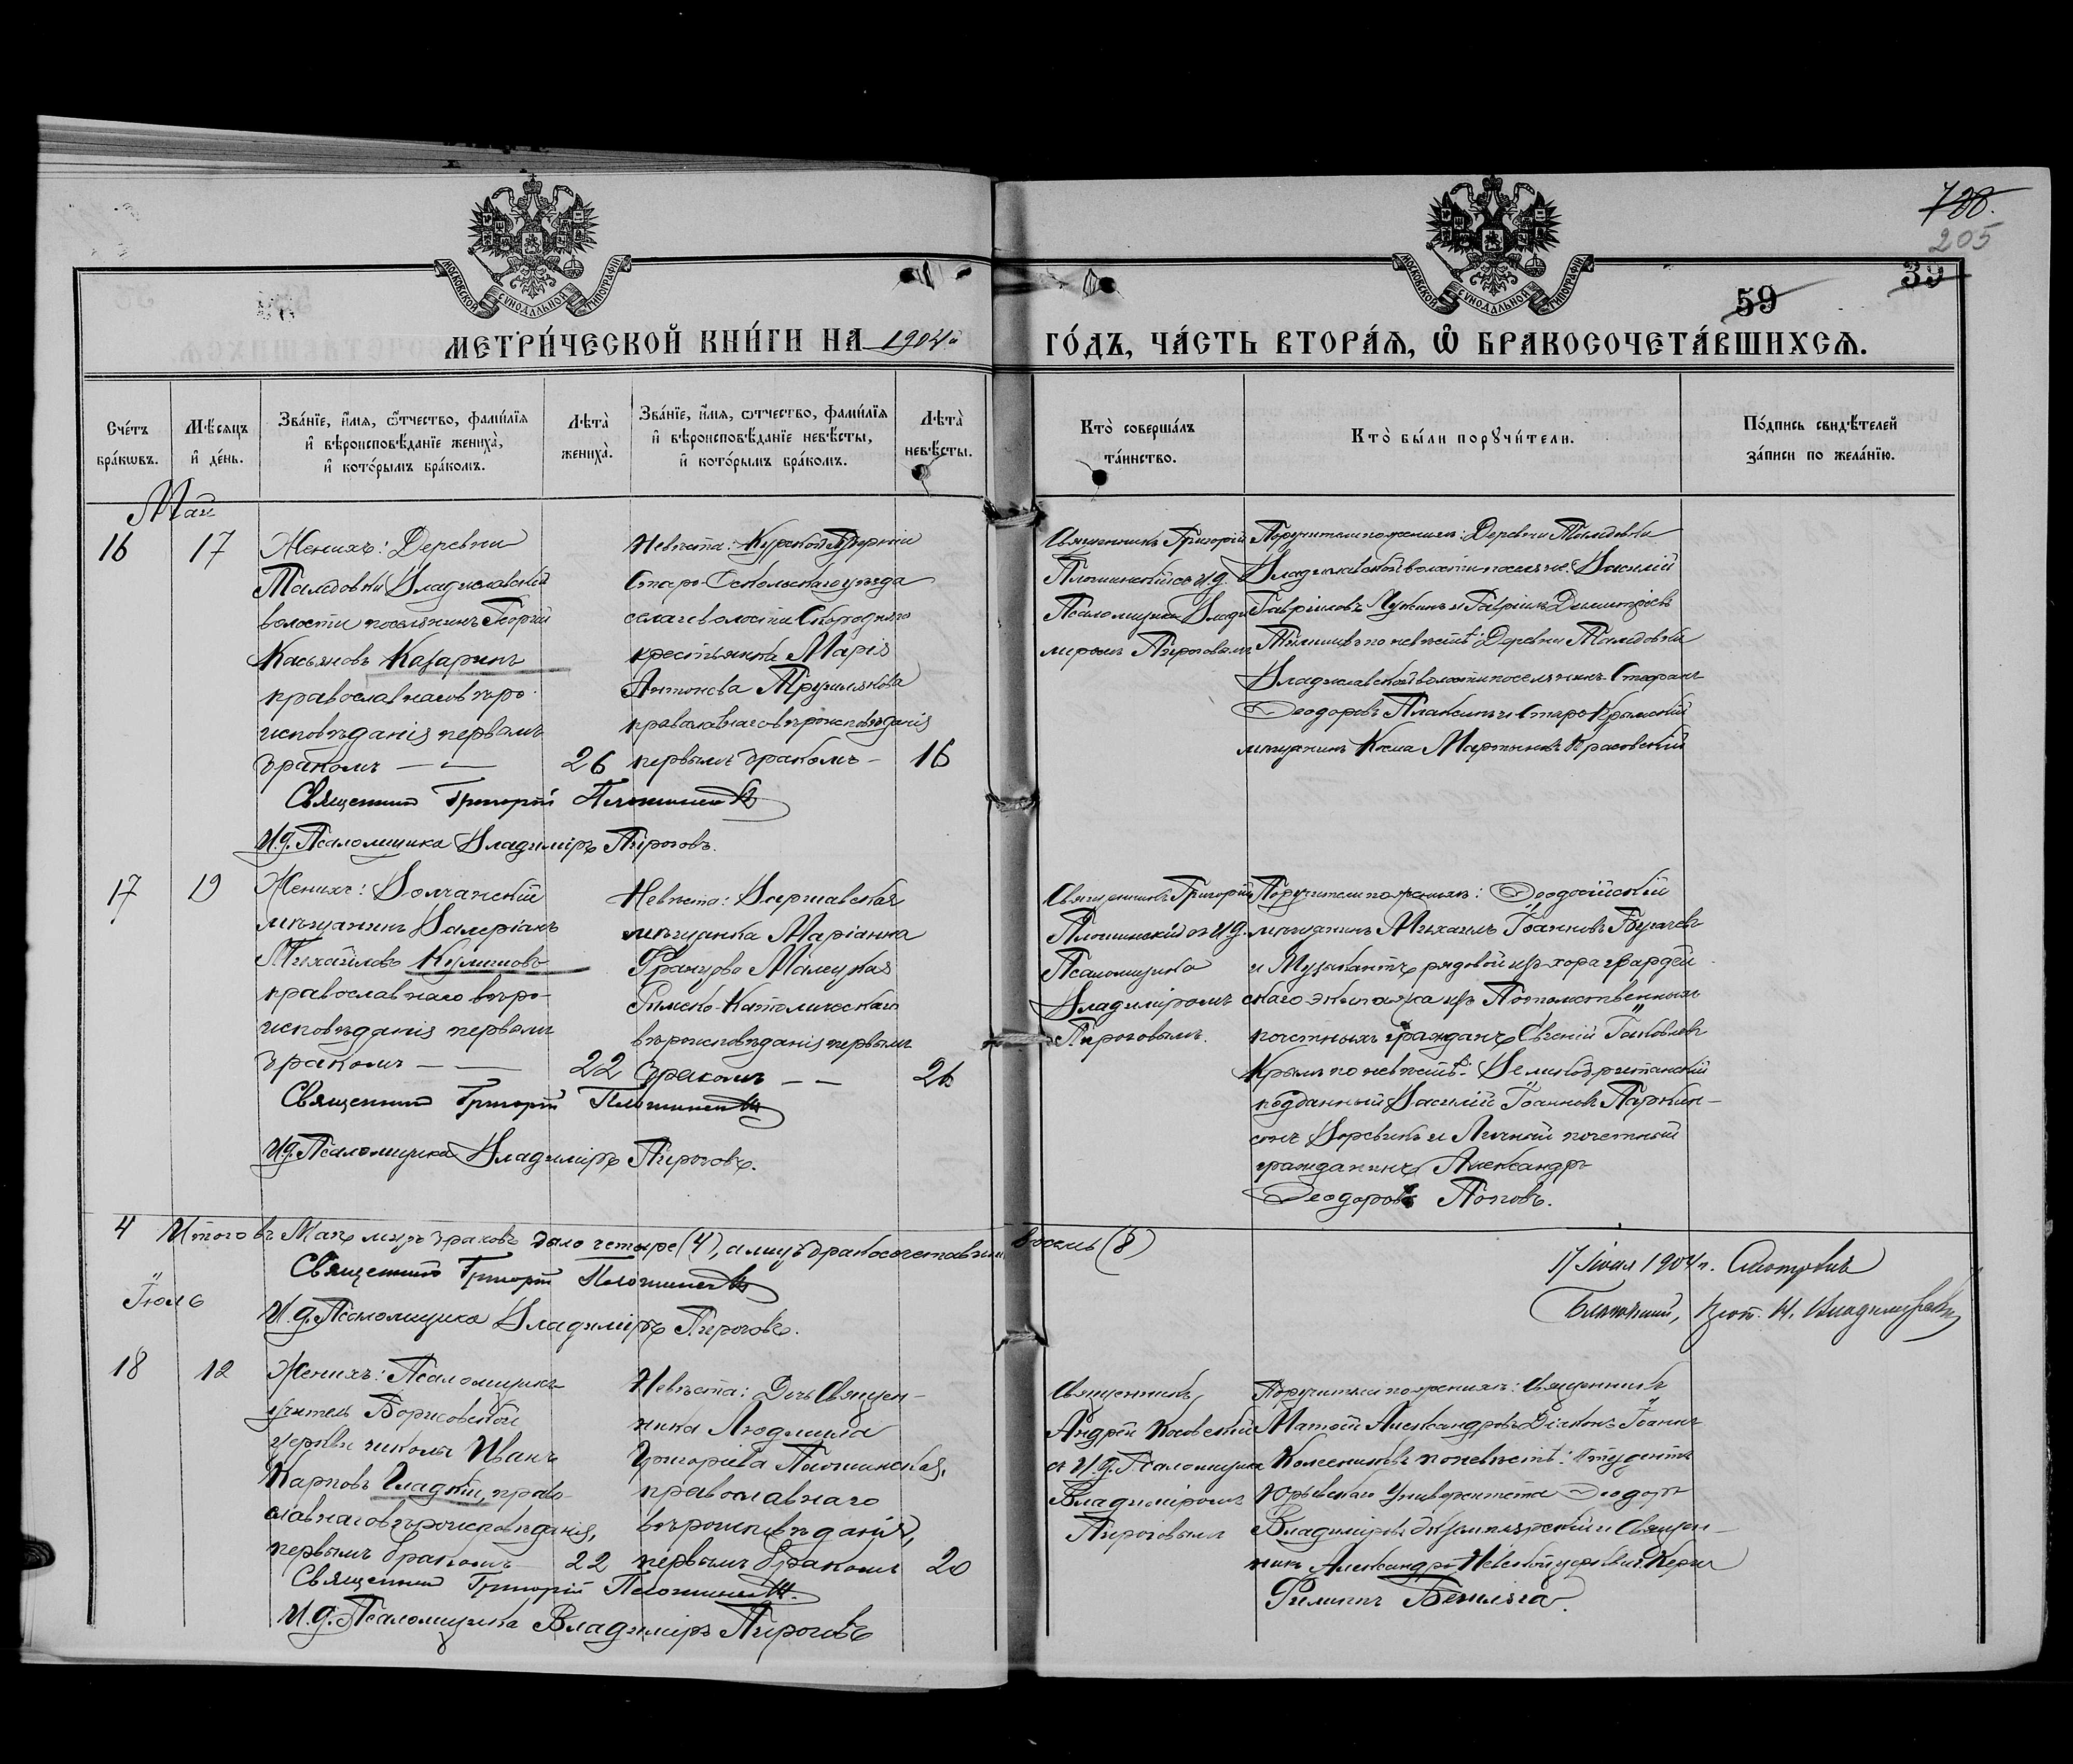 738.
205
39
59
МОСКОВСКОЙ СѴНОДАЛЬНОЙ ТИПОГРАФІИ
МОСКОВСКОЙ СѴНОДАЛЬНОЙ ТИПОГРАФІИ
МЕТРИ́ЧЕСКОЙ КНИ́ГИ НА 1904й ГО́ДЪ, ЧА́СТЬ ВТОРА́Ѧ, Ѽ БРАКОСОЧЕТА́ВШИХСѦ.
Сче́тъ бра́кѡвъ.
Мѣ́сѧцъ и҆ де́нь.
Зва́нїе, и҆́мѧ, ѻ҆́тчество, фами́лїѧ и҆ вѣроисповѣ́данїе жениха̀, и҆ кото́рымъ бра́комъ.
Лѣта̀ жениха̀.
Зва́нїе, и҆́мѧ, ѻ҆́тчество, фами́лїѧ и҆ вѣроисповѣ́данїе невѣ́сты, и҆ кото́рымъ бра́комъ.
Лѣта̀ невѣ́сты.
Кто̀ соверша́лъ та́инство.
Кто̀ бы́ли порꙋчи́тели.
По́дпись свидѣ́телей за́писи по жела́нїю.
Май
16
17
Женихъ: Деревни
Владиславской
волости поселянинъ Георгій
Касьяновъ Казаринъ
православнаго вѣро-
исповѣданія первымъ
бракомъ — —
26
Невѣста: Курской Губерніи
Старо-Оскольскаго уѣзда
села и волости Скороднаго
крестьянка Марія
Антонова
православнаго вѣроисповѣданія
первымъ бракомъ —
16
Священникъ Григорій
Плошинскій съ И.д.
Псаломщика Влади-
міромъ Пироговымъ
Поручители по женихѣ: Деревни
Владиславской волости поселяне: Василій
Гавріиловъ и Гавріилъ Димитріевъ
по невѣстѣ: Деревни
Владиславской волости поселянинъ Стефанъ
Ѳеодоровъ и Старо-Крымскій
мѣщанинъ Косма Мартыновъ
Священникъ Григорій Плошинскій
И.д. Псаломщика Владиміръ Пироговъ.
17
19
Женихъ: Волчанскій
мѣщанинъ Валеріанъ
Михайловъ Кулишовъ
православнаго вѣро-
исповѣданія первымъ
бракомъ — —
22
Невѣста: Варшавская
мѣщанка Маріанна
Францова Малецкая
Римско-Католическаго
вѣроисповѣданія первымъ
бракомъ — —
26
Священникъ Григорій
Плошинскій съ И.д.
Псаломщика
Владиміромъ
Пироговымъ.
Поручители по женихѣ: Ѳеодосійскій
мѣщанинъ Михаилъ Іоанновъ
и Музыкантъ рядовой изъ хора гвардей-
скаго экипажа изъ Потомственныхъ
почетныхъ гражданъ Евгеній Іаковлевъ
Крымъ по невѣстѣ: Великобританскій
подданный Василій Іоанновъ Паркин-
сонъ и Личный почетный
гражданинъ Александръ
Ѳеодоровъ Поповъ.
Священникъ Григорій Плошинскій
И.д. Псаломщика Владиміръ Пироговъ.
4 Итого въ Маѣ мцѣ браковъ было четыре (4), а лицъ бракосочетавшихся восемь (8)
Священникъ Григорій Плошинскій
И.д. Псаломщика Владиміръ Пироговъ.
1904 г. Смотрѣлъ
Благочинный, прот. Н. Владимірскій
Іюль
18
12
Женихъ: Псаломщикъ
учитель Борисовской
церкви школы Иванъ
Карповъ Гладкій, право-
славнаго вѣроисповѣданія,
первымъ бракомъ
22
Невѣста: Дочь Священ-
ника Людмила
Григоріева Плошинская,
православнаго
вѣроисповѣданія,
первымъ бракомъ
20
Священникъ
Андрей Косовскій
съ И.д. Псаломщика
Владиміромъ
Пироговымъ
Поручители по женихѣ: Священникъ
Матѳій Александровъ Діаконъ Іоаннъ
Колесниковъ по невѣстѣ: студентъ
Юрьевскаго Университета Ѳеодоръ
Владиміровъ и Священ-
никъ Александро-Невской церкви г. Керчи
Филиппъ
Священникъ Григорій Плошинскій.
И.д. Псаломщика Владиміръ Пироговъ